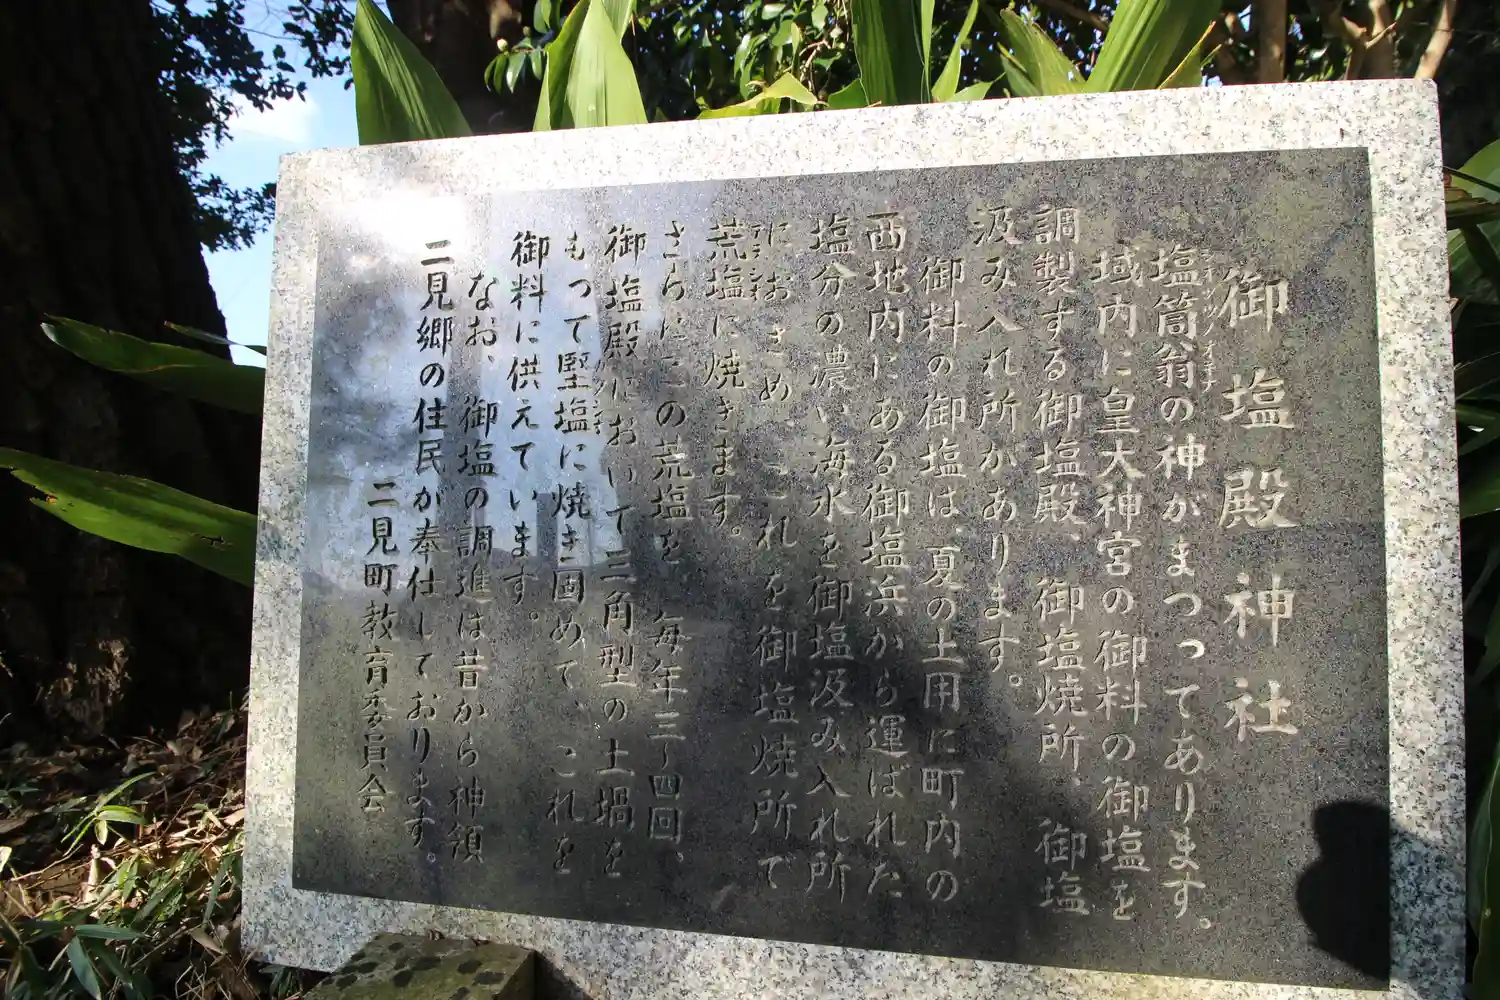 御塩殿神社
塩筒翁の神がまつってあります。
域内に皇大神宮の御料の御塩を
調製する御塩殿、御塩焼所、御塩
汲み入れ所があります。
御料の御塩は、夏の土用に町内の
西地内にある御塩浜から運ばれた
塩分の濃い海水を御塩汲み入れ所
におさめ、これを御塩焼所で
荒塩に焼きます。
さらにこの荒塩を、毎年三〜四回、
御塩殿において三角型の土堝を
もって堅塩に焼き固めて、これを
御料に供えています。
なお、御塩の調進は昔から神領
二見郷の住民が奉仕しております。
二見町教育委員会